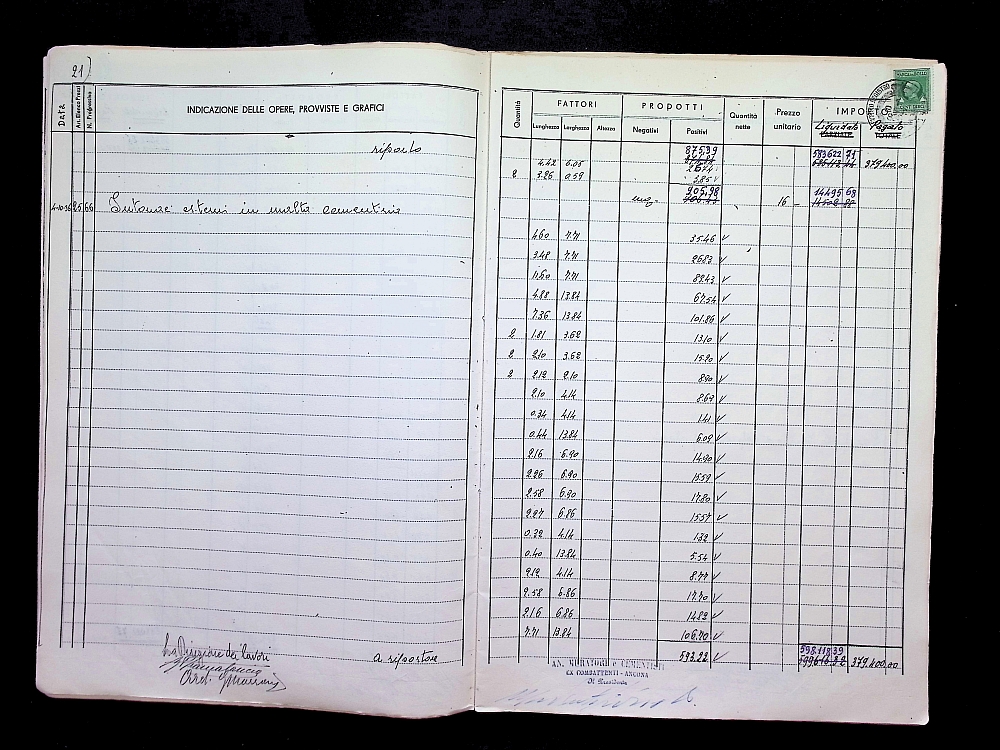 21)
Data
An. Elenco Prezzi
N. Progressivo
INDICAZIONE DELLE OPERE, PROVVISTE E GRAFICI
riporto
4-10-36 25 66 Intonaci esterni in malta cementizia
La Direzione dei lavori
Arch.
a riportare
Quantità
FATTORI
PRODOTTI
Quantità nette
Prezzo unitario
Lunghezza Larghezza Altezza
Negativi
Positivi
Liquidato Pagato
875.39
593622 71
379400.00
4.42 6.05
2 3.26 0.59
3.85 v
905.98
mq.
16 —
14495 68
4.60 7.71 35.46 v
3.48 7.71 26.83 v
11.60 7.71 89.43 v
4.88 13.84 67.54 v
7.36 13.84 101.86 v
2 1.81 3.62 13.10 v
2 2.10 3.62 15.20 v
2 2.12 2.10 8.90 v
2.10 4.14 8.69 v
0.34 4.14 1.41 v
0.44 13.84 6.09 v
2.16 6.90 14.90 v
2.26 6.90 15.59 v
2.58 6.90 17.80 v
2.27 6.86 15.57 v
0.32 4.14 1.32 v
0.40 13.84 5.54 v
2.12 4.14 8.77 v
2.58 6.86 17.70 v
2.16 6.86 14.82 v
7.71 13.84 106.70 v
593.22 v
598.118.39
379.400.00
AN. MURATORI e CEMENTISTI
EX COMBATTENTI - ANCONA
Il Presidente